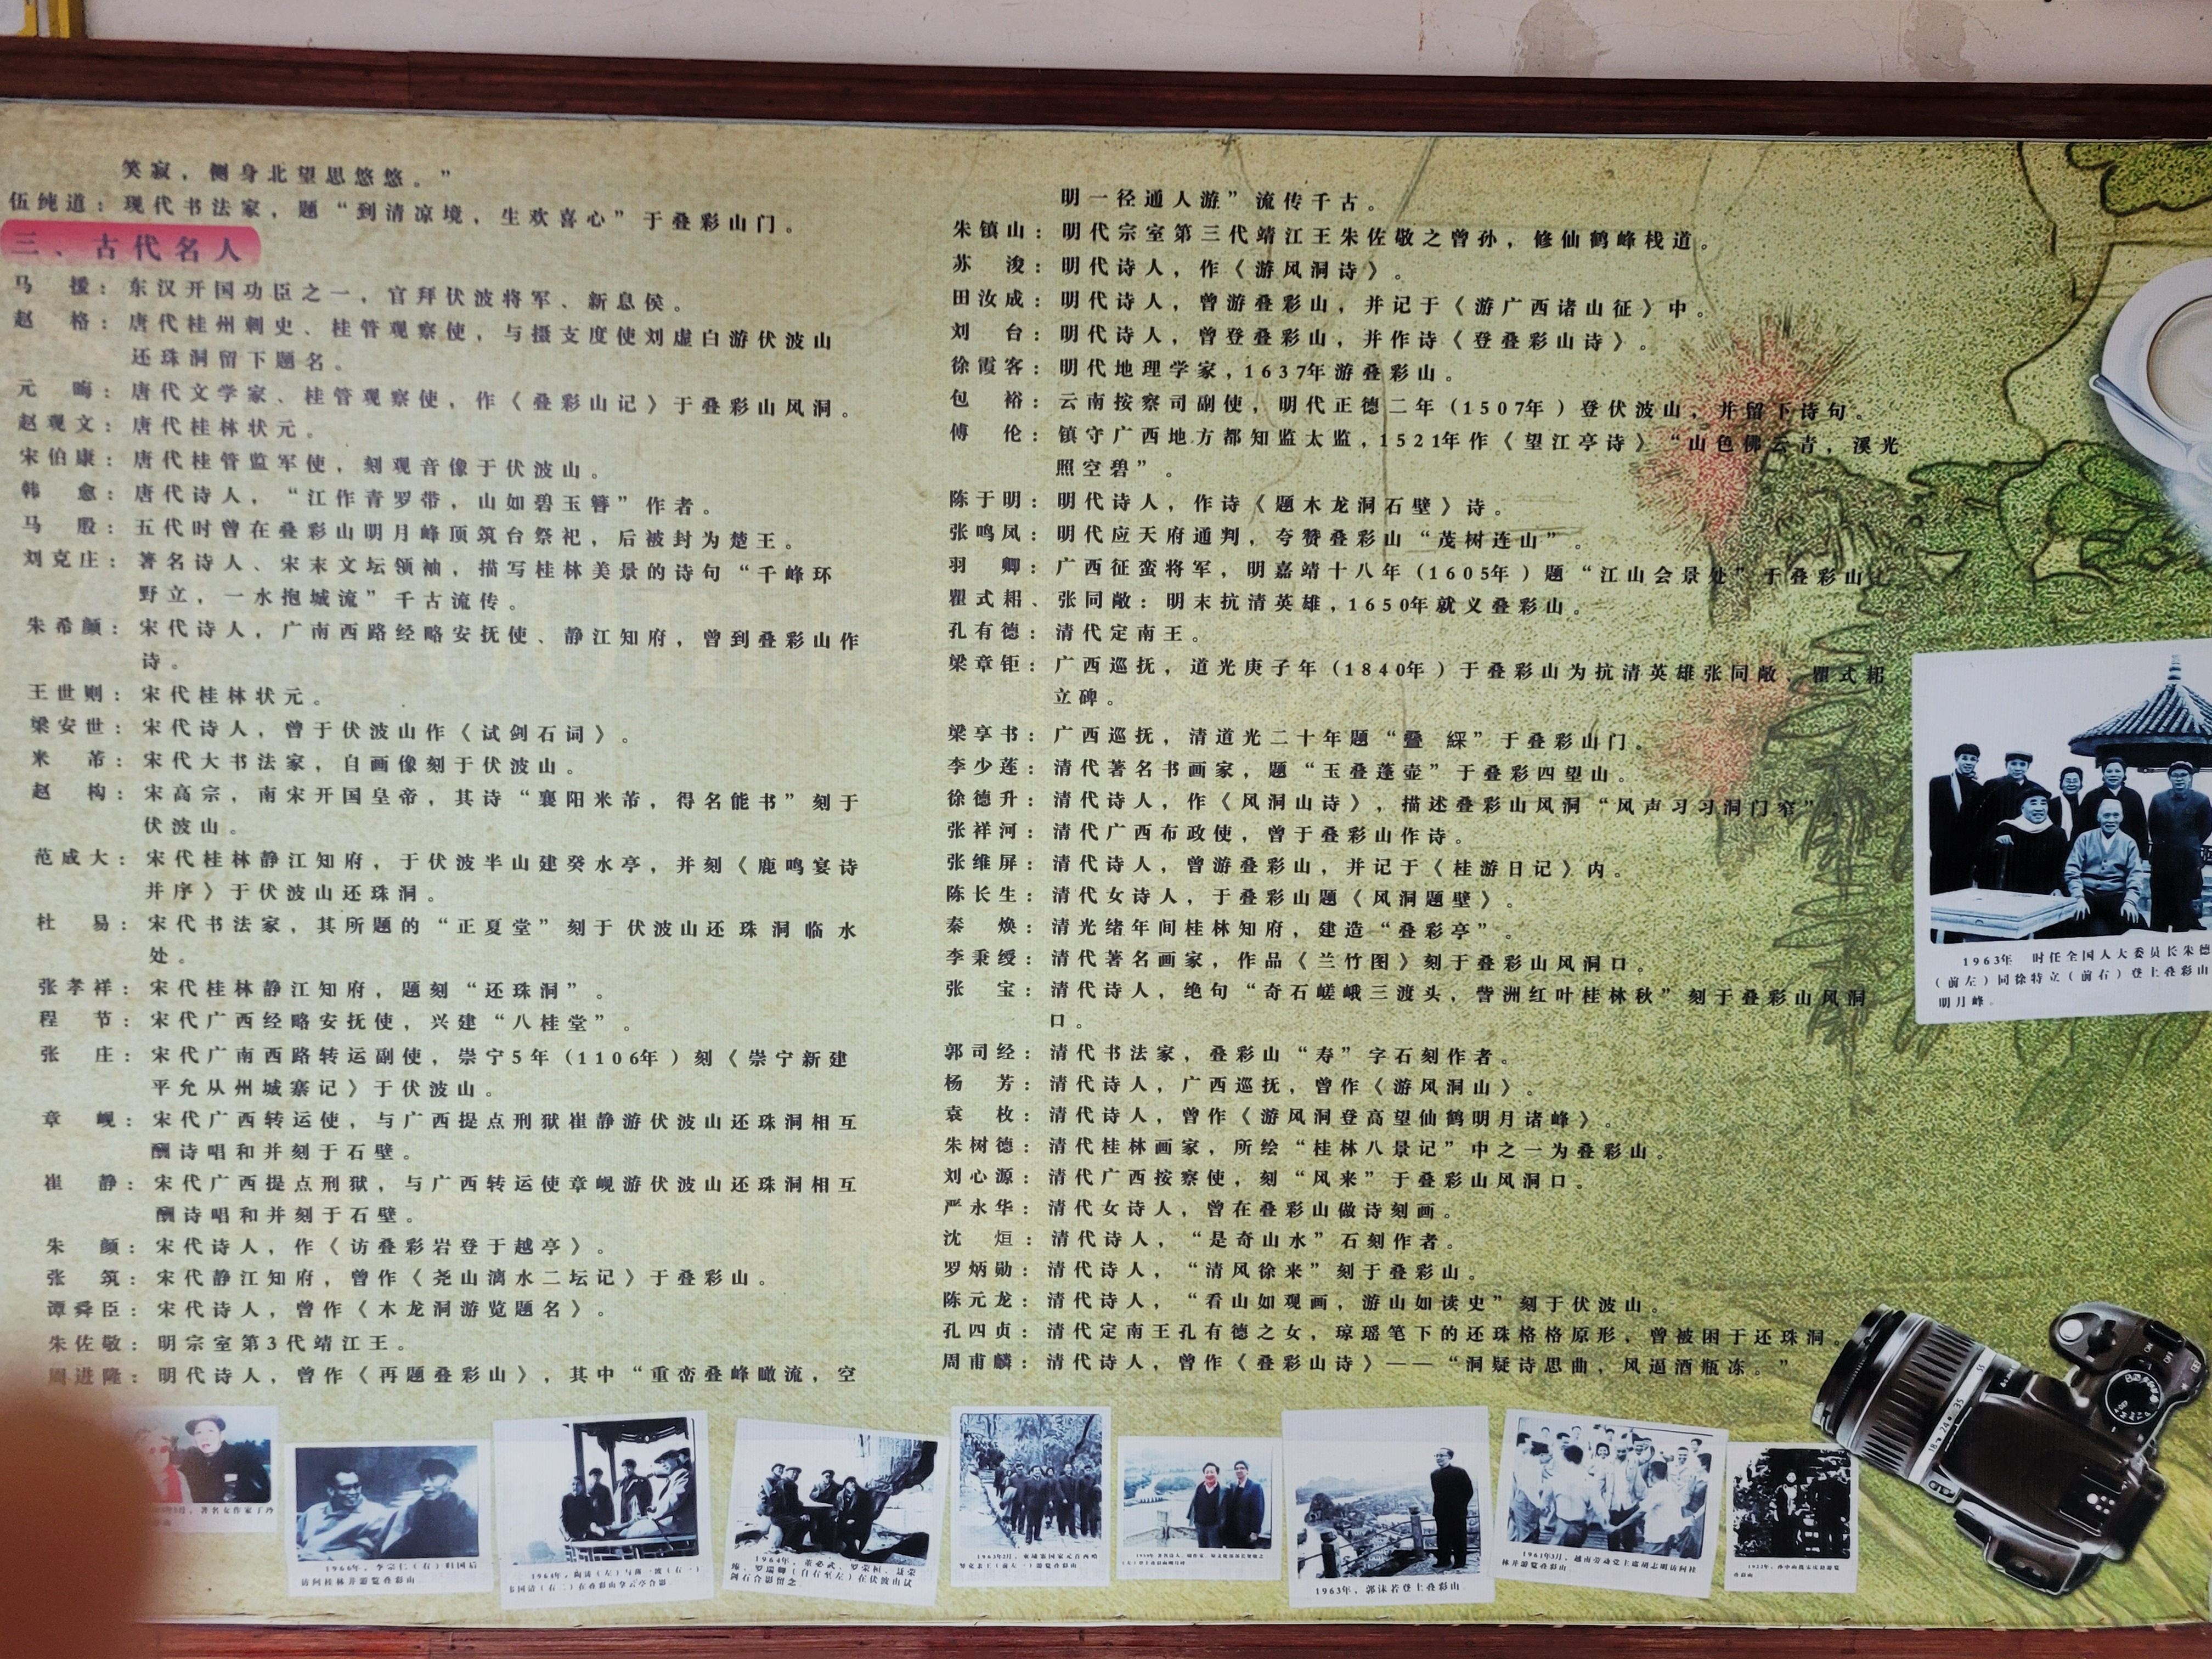 笑寂，侧身北望思悠悠。”
伍纯道：现代书法家，题“到清凉境，生欢喜心”于叠彩山门。
三、古代名人
马　援：东汉开国功臣之一，官拜伏波将军、新息侯。
赵　格：唐代桂州刺史、桂管观察使，与摄支度使刘虚白游伏波山
还珠洞留下题名。
元　晦：唐代文学家、桂管观察使，作《叠彩山记》于叠彩山风洞。
赵观文：唐代桂林状元。
宋伯康：唐代桂管监军使，刻观音像于伏波山。
韩　愈：唐代诗人，“江作青罗带，山如碧玉簪”作者。
马　殷：五代时曾在叠彩山明月峰顶筑台祭祀，后被封为楚王。
刘克庄：著名诗人、宋末文坛领袖，描写桂林美景的诗句“千峰环
野立，一水抱城流”千古流传。
朱希颜：宋代诗人，广南西路经略安抚使、静江知府，曾到叠彩山作
诗。
王世则：宋代桂林状元。
梁安世：宋代诗人，曾于伏波山作《试剑石词》。
米　芾：宋代大书法家，自画像刻于伏波山。
赵　构：宋高宗，南宋开国皇帝，其诗“襄阳米芾，得名能书”刻于
伏波山。
范成大：宋代桂林静江知府，于伏波半山建癸水亭，并刻《鹿鸣宴诗
并序》于伏波山还珠洞。
杜　易：宋代书法家，其所题的“正夏堂”刻于伏波山还珠洞临水
处。
张孝祥：宋代桂林静江知府，题刻“还珠洞”。
程　节：宋代广西经略安抚使，兴建“八桂堂”。
张　庄：宋代广南西路转运副使，崇宁5年（1106年）刻《崇宁新建
平允从州城寨记》于伏波山。
章　岘：宋代广西转运使，与广西提点刑狱崔静游伏波山还珠洞相互
酬诗唱和并刻于石壁。
崔　静：宋代广西提点刑狱，与广西转运使章岘游伏波山还珠洞相互
酬诗唱和并刻于石壁。
朱　颜：宋代诗人，作《访叠彩岩登于越亭》。
张　筑：宋代静江知府，曾作《尧山漓水二坛记》于叠彩山。
谭舜臣：宋代诗人，曾作《木龙洞游览题名》。
朱佐敬：明宗室第3代靖江王。
周进隆：明代诗人，曾作《再题叠彩山》，其中“重峦叠峰瞰流，空
明一径通人游”流传千古。
朱镇山：明代宗室第三代靖江王朱佐敬之曾孙，修仙鹤峰栈道。
苏　浚：明代诗人，作《游风洞诗》。
田汝成：明代诗人，曾游叠彩山，并记于《游广西诸山征》中。
刘　台：明代诗人，曾登叠彩山，并作诗《登叠彩山诗》。
徐霞客：明代地理学家，1637年游叠彩山。
包　裕：云南按察司副使，明代正德二年（1507年）登伏波山，并留下诗句。
傅　伦：镇守广西地方都知监太监，1521年作《望江亭诗》“山色佛云青，溪光
照空碧”。
陈于明：明代诗人，作诗《题木龙洞石壁》诗。
张鸣凤：明代应天府通判，夸赞叠彩山“茂树连山”。
羽　卿：广西征蛮将军，明嘉靖十八年（1605年）题“江山会景处”于叠彩山。
瞿式耜、张同敞：明末抗清英雄，1650年就义叠彩山。
孔有德：清代定南王。
梁章钜：广西巡抚，道光庚子年（1840年）于叠彩山为抗清英雄张同敞、瞿式耜
立碑。
梁享书：广西巡抚，清道光二十年题“疊　綵”于叠彩山门。
李少莲：清代著名书画家，题“玉叠蓬壶”于叠彩四望山。
徐德升：清代诗人，作《风洞山诗》，描述叠彩山风洞“风声习习洞门窄”，
张祥河：清代广西布政使，曾于叠彩山作诗。
张维屏：清代诗人，曾游叠彩山，并记于《桂游日记》内。
陈长生：清代女诗人，于叠彩山题《风洞题壁》。
秦　焕：清光绪年间桂林知府，建造“叠彩亭”。
李秉绶：清代著名画家，作品《兰竹图》刻于叠彩山风洞口。
张　宝：清代诗人，绝句“奇石嵯峨三渡头，訾洲红叶桂林秋”刻于叠彩山风洞
口。
郭司经：清代书法家，叠彩山“寿”字石刻作者。
杨　芳：清代诗人，广西巡抚，曾作《游风洞山》。
袁　枚：清代诗人，曾作《游风洞登高望仙鹤明月诸峰》。
朱树德：清代桂林画家，所绘“桂林八景记”中之一为叠彩山。
刘心源：清代广西按察使，刻“风来”于叠彩山风洞口。
严永华：清代女诗人，曾在叠彩山做诗刻画。
沈　烜：清代诗人，“是奇山水”石刻作者。
罗炳勋：清代诗人，“清风徐来”刻于叠彩山。
陈元龙：清代诗人，“看山如观画，游山如读史”刻于伏波山。
孔四贞：清代定南王孔有德之女，琼瑶笔下的还珠格格原形，曾被困于还珠洞。
周甫麟：清代诗人，曾作《叠彩山诗》——“洞疑诗思曲，风逼酒瓶冻。”
1963年　时任全国人大委员长朱德
（前左）同徐特立（前右）登上叠彩山
明月峰。
著名女作家丁玲
1966年，李宗仁（右）归国后
访问桂林并游览叠彩山
1964年，董必武、罗荣桓、聂荣
臻、罗瑞卿（自右至左）在伏波山试
剑石合影留念
1963年，郭沫若登上叠彩山
1961年3月，越南劳动党主席胡志明访问桂
林并游览叠彩山